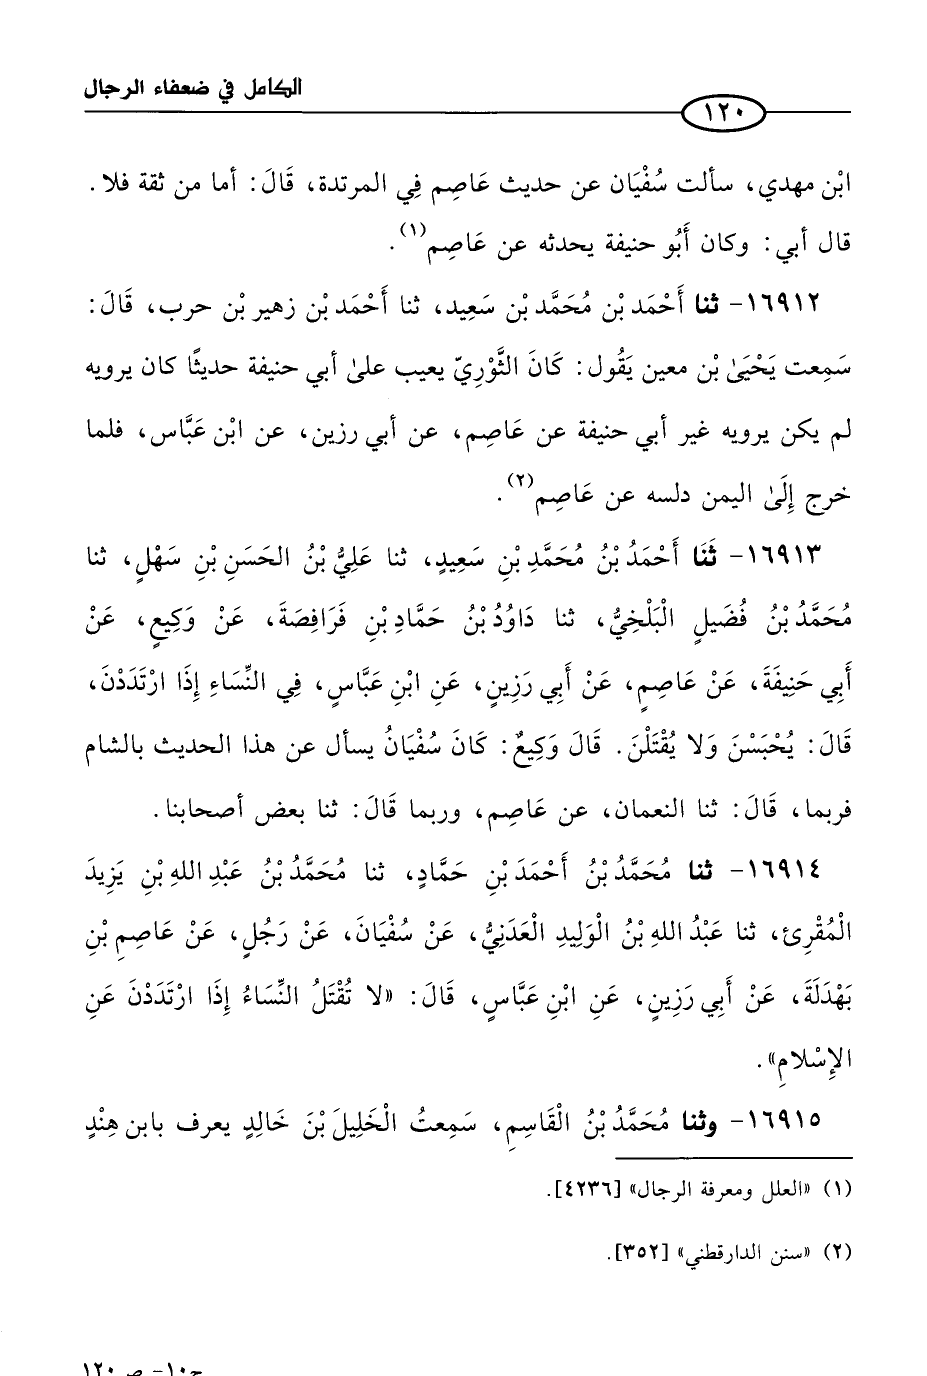 الكامل في ضعفاء الرجال
١٢٠
ابْن مهدي، سألت سُفْيَان عن حديث عَاصِم فِي المرتدة، قَالَ: أما من ثقة فلا.
قال أبي: وكان أَبُو حنيفة يحدثه عن عَاصِم(١).
١٦٩١٢- ثنا أَحْمَد بْن مُحَمَّد بْن سَعِيد، ثنا أَحْمَد بْن زهير بْن حرب، قَالَ:
سَمِعت يَحْيَىٰ بْن معين يَقُول: كَانَ الثَّوْرِيّ يعيب علىٰ أبي حنيفة حديثًا كان يرويه
لم يكن يرويه غير أبي حنيفة عن عَاصِم، عن أبي رزين، عن ابْن عَبَّاس، فلما
خرج إِلَىٰ اليمن دلسه عن عَاصِم(٢).
١٦٩١٣- ثَنَا أَحْمَدُ بْنُ مُحَمَّدِ بْنِ سَعِيدٍ، ثنا عَلِيُّ بْنُ الحَسَنِ بْنِ سَهْلٍ، ثنا
مُحَمَّدُ بْنُ فُضَيلٍ الْبَلْخِيُّ، ثنا دَاوُدُ بْنُ حَمَّادِ بْنِ فَرَافِصَةَ، عَنْ وَكِيعٍ، عَنْ
أَبِي حَنِيفَةَ، عَنْ عَاصِمٍ، عَنْ أَبِي رَزِينٍ، عَنِ ابْنِ عَبَّاسٍ، فِي النِّسَاءِ إِذَا ارْتَدَدْنَ،
قَالَ: يُحْبَسْنَ وَلا يُقْتَلْنَ. قَالَ وَكِيعٌ: كَانَ سُفْيَانُ يسأل عن هذا الحديث بالشام
فربما، قَالَ: ثنا النعمان، عن عَاصِم، وربما قَالَ: ثنا بعض أصحابنا.
١٦٩١٤- ثنا مُحَمَّدُ بْنُ أَحْمَدَ بْنِ حَمَّادٍ، ثنا مُحَمَّدُ بْنُ عَبْدِ اللهِ بْنِ يَزِيدَ
الْمُقْرِئ، ثنا عَبْدُ اللهِ بْنُ الْوَلِيدِ الْعَدَنِيُّ، عَنْ سُفْيَانَ، عَنْ رَجُلٍ، عَنْ عَاصِمِ بْنِ
بَهْدَلَةَ، عَنْ أَبِي رَزِينٍ، عَنِ ابْنِ عَبَّاسٍ، قَالَ: «لا تُقْتَلُ النِّسَاءُ إِذَا ارْتَدَدْنَ عَنِ
الإِسْلامِ».
١٦٩١٥- وثنا مُحَمَّدُ بْنُ الْقَاسِمِ، سَمِعتُ الْخَلِيلَ بْنَ خَالِدٍ يعرف بابن هِنْدٍ
(١) «العلل ومعرفة الرجال» [٤٢٣٦].
(٢) «سنن الدارقطني» [٣٥٢].
ج١٠- ص١٢٠